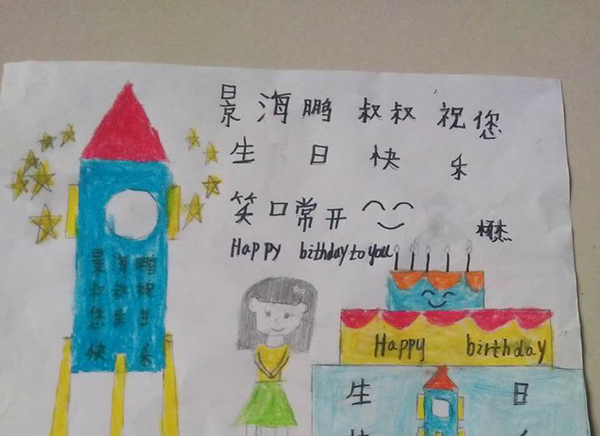 景海鹏叔叔祝您
生日快乐
笑口常开
Happy birthday to you
景海鹏
叔叔祝
您生日
快乐
Happy birthday
生日
快乐